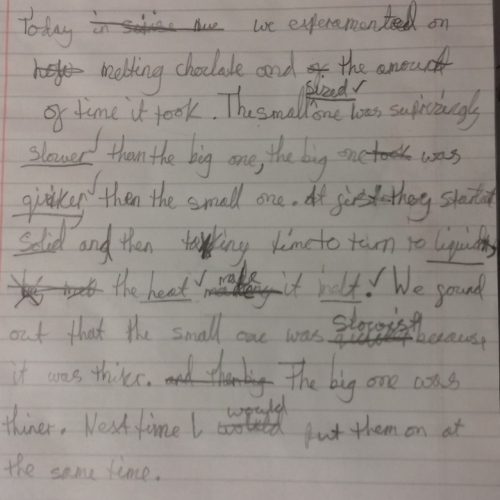 Today we experamented on
melting choclate and the amount
of time it took. The small sized one was suprizingly
slower than the big one, the big one was
quiker then the small one. At first they started
Solid and then taking time to turn to liquid,
the heat made it melt. We found
out that the small one was Slowist because
it was thiker. The big one was
thiner. Next time I would put them on at
the same time.